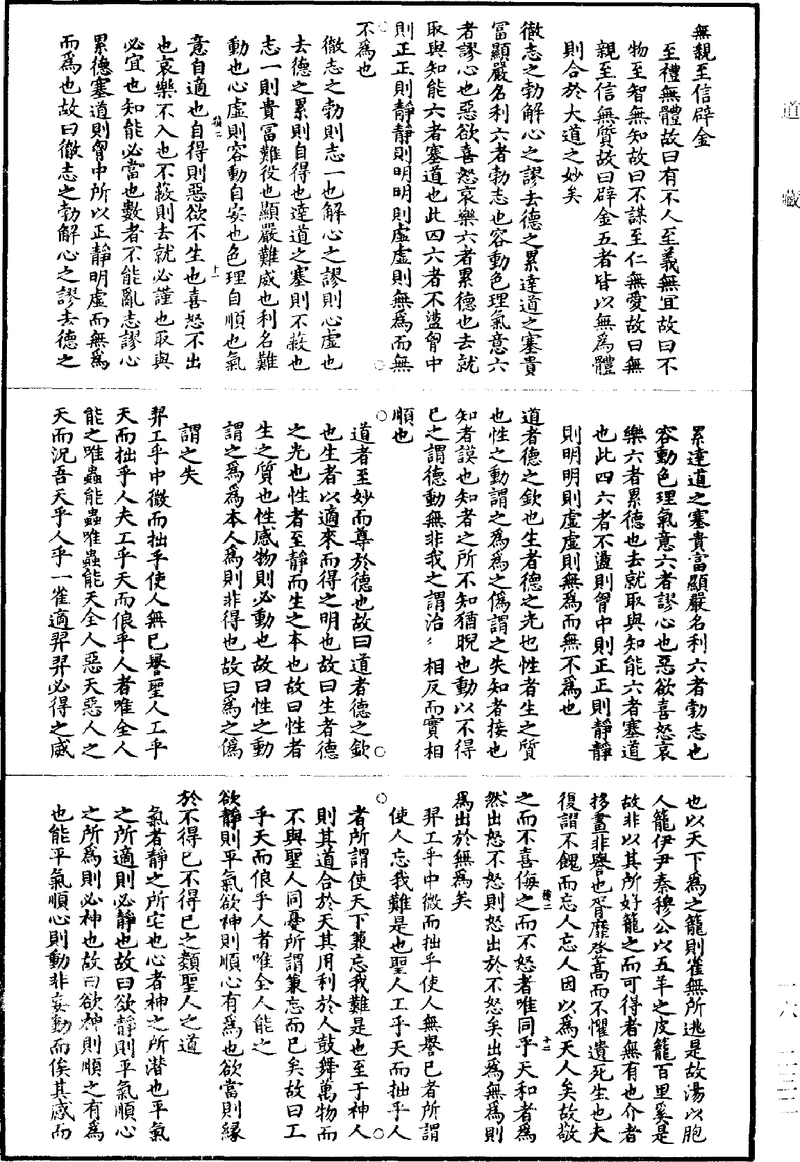 無親至信辟金
至禮無體故曰有不人至義無宜故曰不
物至智無知故曰不謀至仁無愛故曰無
親至信無質故曰辟金五者皆以無為體
則合於大道之妙矣
徹志之勃解心之謬去德之累達道之塞貴
富顯嚴名利六者勃志也容動色理氣意六
者謬心也惡欲喜怒哀樂六者累德也去就
取與知能六者塞道也此四六者不盪胷中
則正正則靜靜則明明則虛虛則無為而無
不為也
徹志之勃則志一也解心之謬則心虛也
去德之累則自得也達道之塞則不蔽也
志一則貴富難役也顯嚴難威也利名難
動也心虛則容動自安也色理自順也氣
意自適也自得則惡欲不生也喜怒不出
也哀樂不入也不蔽則去就必謹也取與
必宜也知能必當也數者不能亂志謬心
累德塞道則胷中所以正靜明虛而無為
而為也故曰徹志之勃解心之謬去德之
累達道之塞貴富顯嚴名利六者勃志也
容動色理氣意六者謬心也惡欲喜怒哀
樂六者累德也去就取與知能六者塞道
也此四六者不盪則胷中則正正則靜靜
則明明則虛虛則無為而無不為也
道者德之欽也生者德之光也性者生之質
也性之動謂之為為之偽謂之失知者接也
知者謨也知者之所不知猶睨也動以不得
已之謂德動無非我之謂治名相反而實相
順也
道者至妙而尊於德也故曰道者德之欽
也生者以適來而得之明也故曰生者德
之光也性者至靜而生之本也故曰性者
生之質也性感物則必動也故曰性之動
謂之為為本人為則非得也故曰為之偽
謂之失
羿工乎中微而拙乎使人無已譽聖人工乎
天而拙乎人夫工乎天而俍乎人者唯全人
能之唯蟲能蟲唯蟲能天全人惡天惡人之
天而況吾天乎人乎一雀適羿羿必得之威
也以天下為之籠則雀無所逃是故湯以胞
人籠伊尹秦穆公以五羊之皮籠百里奚是
故非以其所好籠之而可得者無有也介者
拸畫非譽也胥靡登高而不懼遺死生也夫
復謵不餽而忘人忘人因以為天人矣故敬
之而不喜侮之而不怒者唯同乎天和者為
然出怒不怒則怒出於不怒矣出為無為則
為出於無為矣
羿工乎中微而拙乎使人無譽已者所謂
使人忘我難是也聖人工乎天而拙乎人
者所謂使天下兼忘我難是也至于神人
則其道合於天其用利於人鼓舞萬物而
不與聖人同憂所謂兼忘而已矣故曰工
乎天而俍乎人者唯全人能之
欲靜則平氣欲神則順心有為也欲當則緣
於不得已不得已之類聖人之道
氣者靜之所宅也心者神之所潛也平氣
之所適則必靜也故曰欲靜則平氣順心
之所為則必神也故曰欲神則順之有為
也能平氣順心則動非妄動而俟其感而
道藏
一六